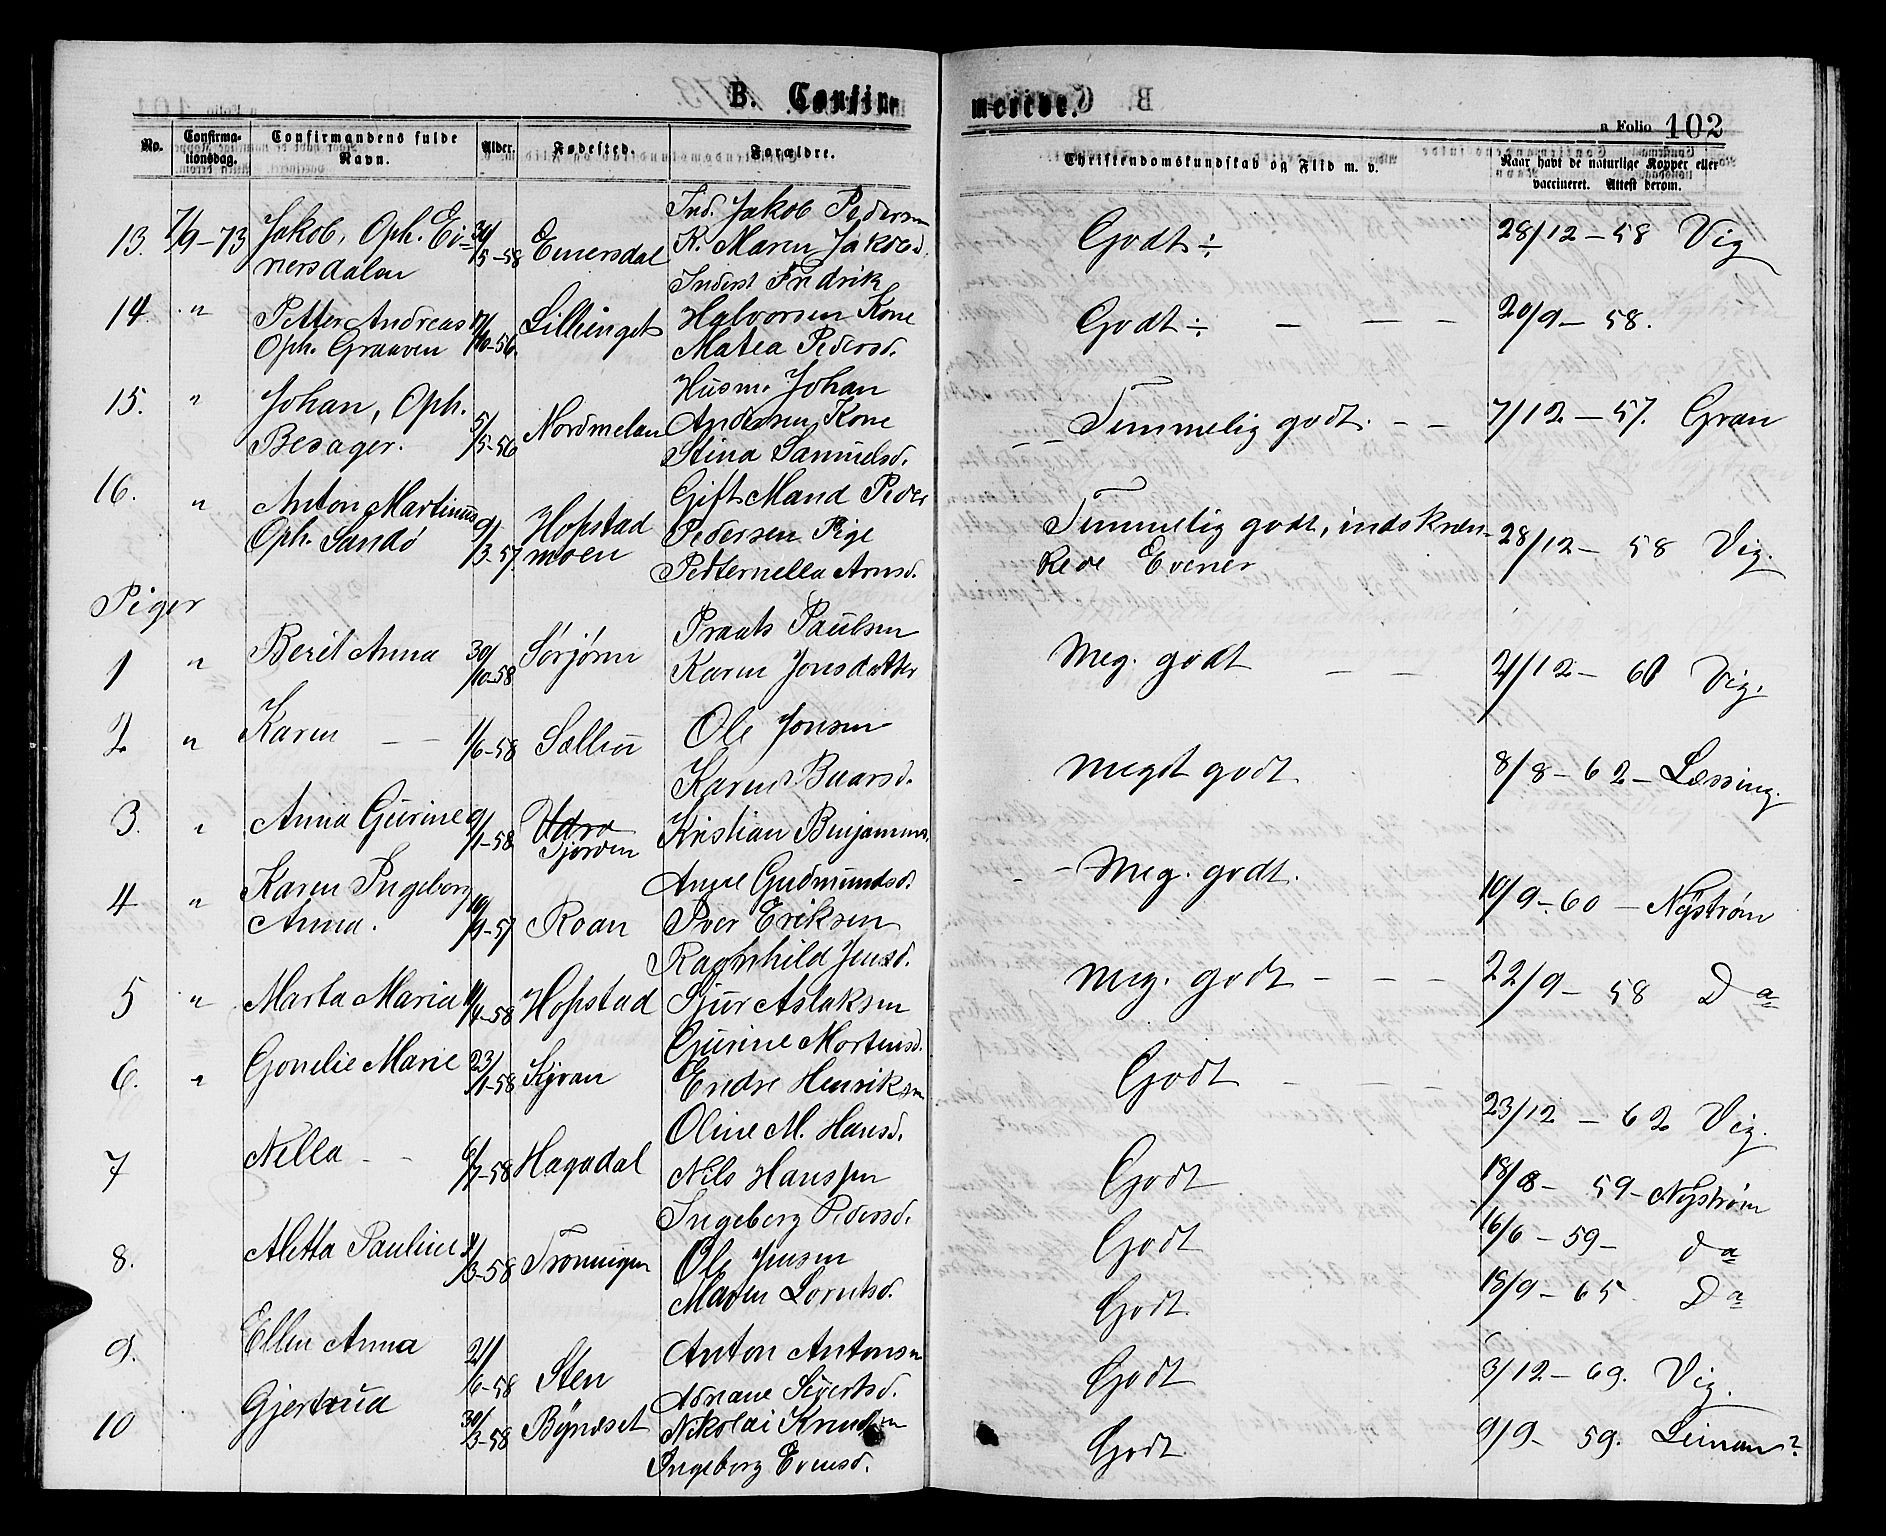 B. Confirmerede.
a Folio 102
No.
Confirmationsdag.
Confirmandens fulde Navn.
Alder.
Fødested.
Forældre.
Christendomskundskab og Flid m. v.
Naar havt de naturlige Kopper eller vaccineret. Attest derom.
Ind. Jakob Pedersen
13. 7/9-73 Jakob, Oph. Ei- 5-58 Einersdal K. Maren Jakobsd. Godt ÷ 28/12 - 58 Vig
nersdalen
Inderst Fredrik
14. " Petter Andreas Lillienget Halvorsen Kone Godt ÷ - - - 20/9 - 58.
Oph. Graaven 10-56. Matea Pedersd.
Husm. Johan
15. " Johan, Oph. 5/5-56 Nordmelan Andersen Kone Temmelig godt. - - 7/12 - 57. Gran
Besager. Stina Samuelsd.
16. " Anton Martinus 9/3-57 Hopstad Gift Mand Peder
Oph. Sandö moen Pedersen Pige Temmelig godt, indskræn- 28/12 - 58 Vig.
Petternella Arnsd. kede Evener
Piger
1 " Berit Anna 30/10-58 Sørjørn Praats Paulsen Meg. godt - - 21/12 - 60 Vig.
Karen Jonsdatter
2 " Karen - - 1/6-58 Sællie Ole Jonsen Meget godt 8/8 - 62 - Læssing.
Karen Baarsd.
3. " Anna Gurine 9/1-58 Udro Kristian Benjamins.
Fjorden
Anne Gudmundsd. - Meg. godt. 10/9 - 60 - Nÿstrøm
4 " Karen Ingeborg 10/9-57 Roan Iver Eriksen
Anna. Ragnhild Jensd. Meg. godt - - - 22/9 - 58 Da
5 " Marta Maria 4-58 Hopstad Sjur Aslaksen
Gurine Mortensd. Godt 23/12 - 62 Vig.
6. " Gonelie Marie 23/1-58 Kiran Endre Henriksen
Oline M. Hansd.
7 Nella - - 6/7-58 Hagadal Nils Hanssen Godt 18/8 - 59 - Nÿstrøm
Ingeborg Pedersd.
8. Aletta Pauline 3-58 Troningen Ole Jensen Godt 16/6 - 59 - da
Maren Lorntsd. Godt. 18/9 - 65 Da
9. Ellen Anna 21/6-58 Sten Anton Antonsen Godt 3/12 - 69. Vig.
Adriane Sivertsd.
10 Gjertrud 30/3-58 Bÿneset Nikolai Knudsen Godt 9/9 - 59. Leiman?
Ingeborg Evensd.